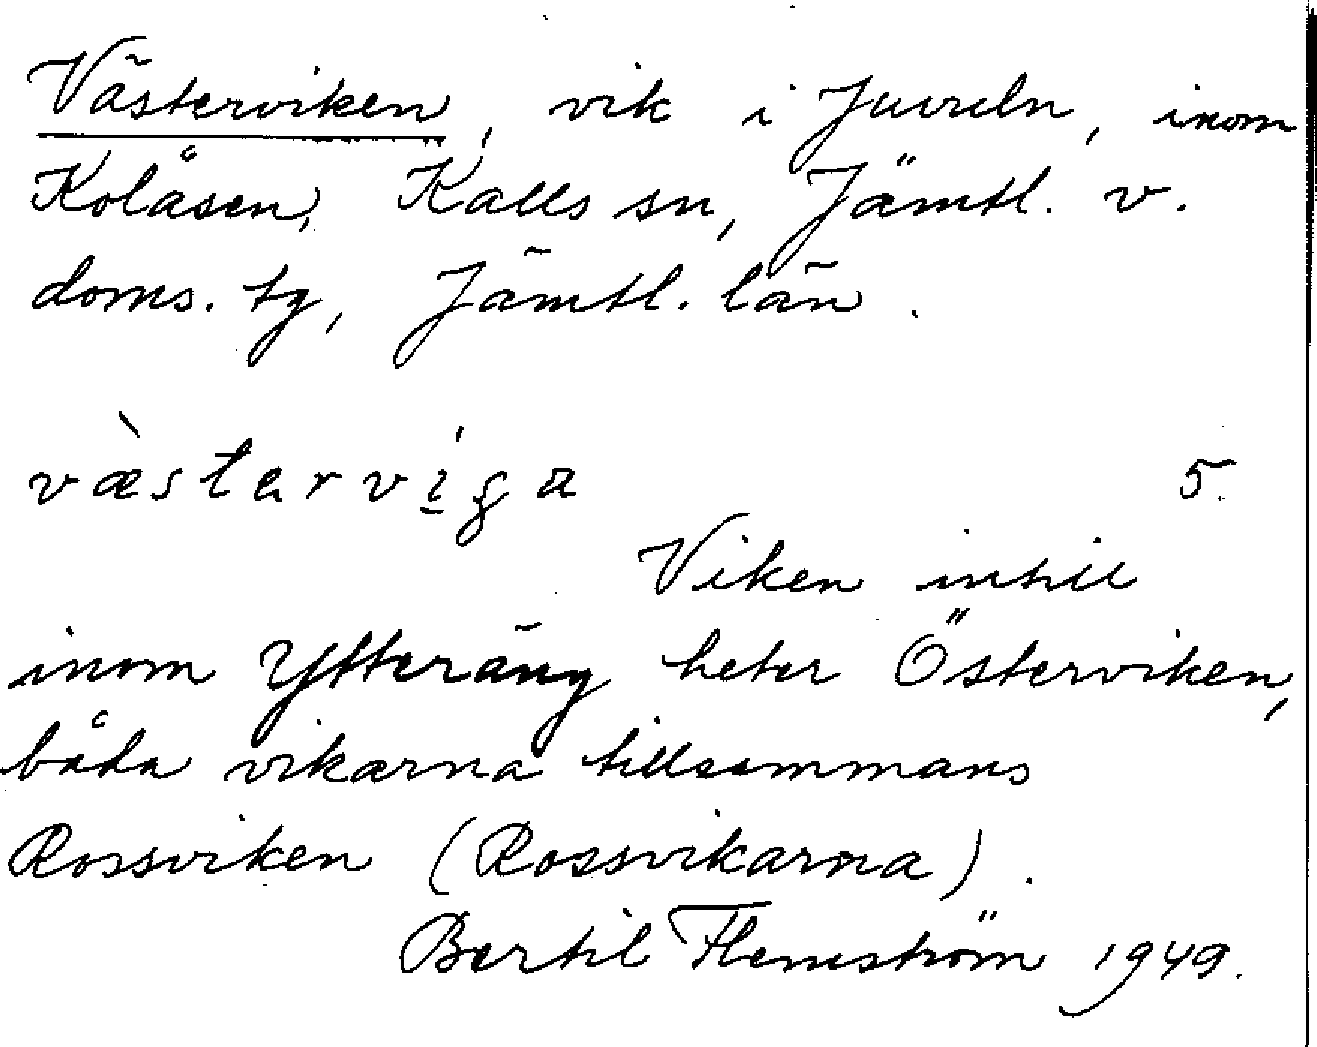 Västerviken, vik i Juveln, inom
Kolåsen, Kalls sn, Jämtl. v.
doms. tg, Jämtl. län.
væ̀stərvi̲ga 5.
Viken intill
inom Ytteräng heter Österviken,
båda vikarna tillsammans
Rossviken (Rossvikarna).
Bertil Flemström 1949.